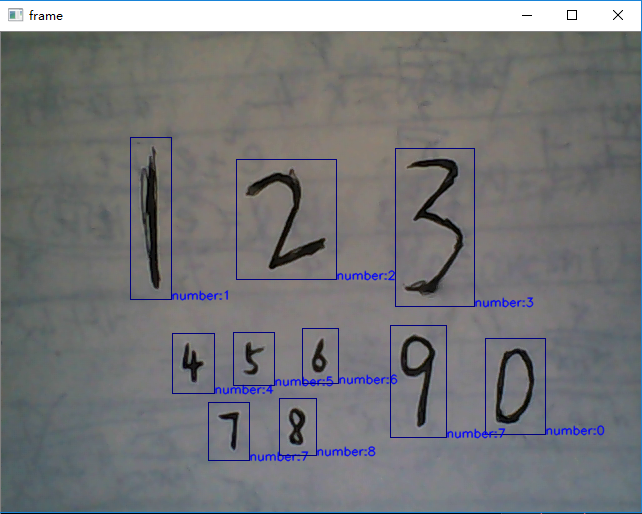 frame
1 2 3
number:1 number:2 number:3
4 5 6 9 0
number:4 number:5 number:6 number:7 number:0
7 8
number:7 number:8